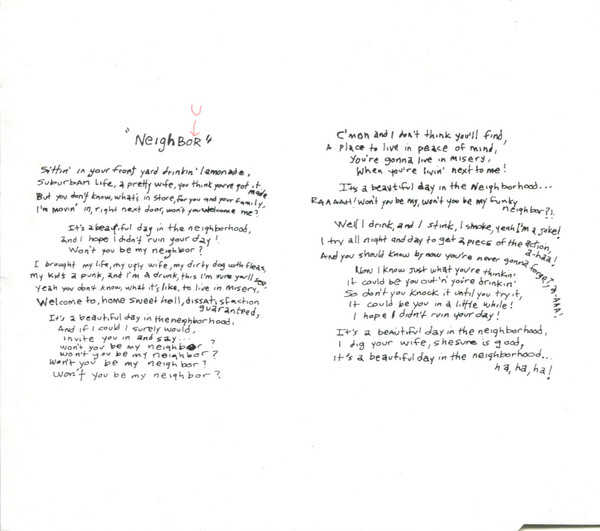 U
"Neighbor"
Sittin' in your front yard drinkin' lamonade,
Suburban life, a pretty wife, you think you've got it made
But you don't know, what's in store, for you and your family,
I'm movin' in, right next door, won't you welcome me?
It's a beautiful day in the neighborhood,
and I hope I didn't ruin your day!
Won't you be my neighbor?
I brought my life, my ugly wife, my dirty dog with fleas,
my kids a punk, and I'm a drunk, this I'm sure you'll see
Yeah you don't know, what it's like, to live in misery,
Welcome to, home sweet hell, dissatisfaction
guaranteed,
It's a beautiful day in the neighborhood,
And if I could I surely would,
invite you in and say...
won't you be my neighbor?
won't you be my neighbor?
Won't you be my neighbor?
Won't you be my neighbor?
C'mon and I don't think you'll find,
A place to live in peace of mind,
You're gonna live in misery,
When you're livin' next to me!
It's a beautiful day in the Neighborhood...
RAAAAAH! Won't you be my, won't you be my funky
neighbor?!
Well I drink, and I stink, I smoke, yeah I'm a joke!
I try all night and day to get a piece of the action,
a-haa!
And you should know by now you're never gonna forget, A-AAA!
Now I know just what you're thinkin'
it could be you cut 'n' you're drinkin'
So don't you knock it until you try it,
It could be you in a little while!
I hope I didn't ruin your day!
It's a beautiful day in the neighborhood,
I dig your wife, she sure is good,
It's a beautiful day in the neighborhood...
ha, ha, ha!